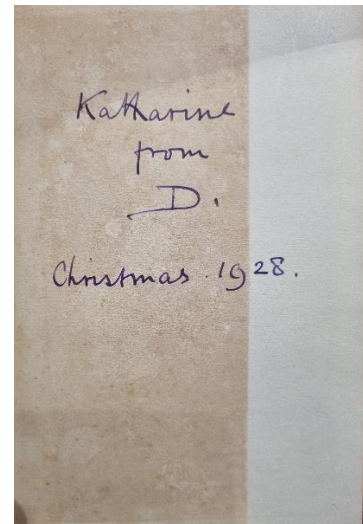 Katharine
from
D.
Christmas 1928.